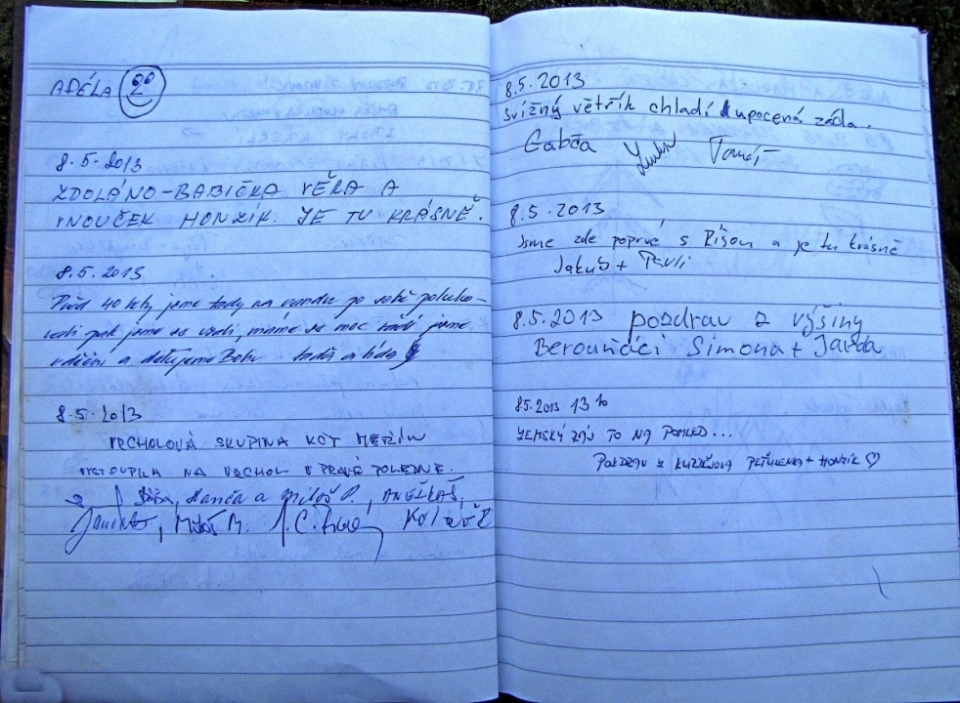 ADÉLA
8.5.2013
ZDOLÁNO-BABIČKA VĚRA A
VNOUČEK HONZÍK. JE TU KRÁSNĚ.
8.5.2013
Před 40 lety jsme tady na vandru po sobě pokuko-
vali pak jsme se vzali, máme se moc rádi jsme
vděčni a děkujeme Bohu
8.5.2013
VRCHOLOVÁ SKUPINA KČT
VYSTOUPILA NA VRCHOL V PRAVÉ POLEDNE.
Hanča a Miloš P., ANEŽKA Š.
Miloš M. Kolář
8.5.2013
Svižný větřík chladí upocená záda.
Gabča Tomáš
8.5.2013
Jsme zde poprvé s Ríšou a je tu krásně
Jakub + Pavli
8.5.2013 pozdrav z výšiny
Berouňáci Simona + Jarda
8.5.2013 13 10
ZEMSKÝ RÁJ TO NA POHLED...
POZDRAV Z + HONZÍK ♡